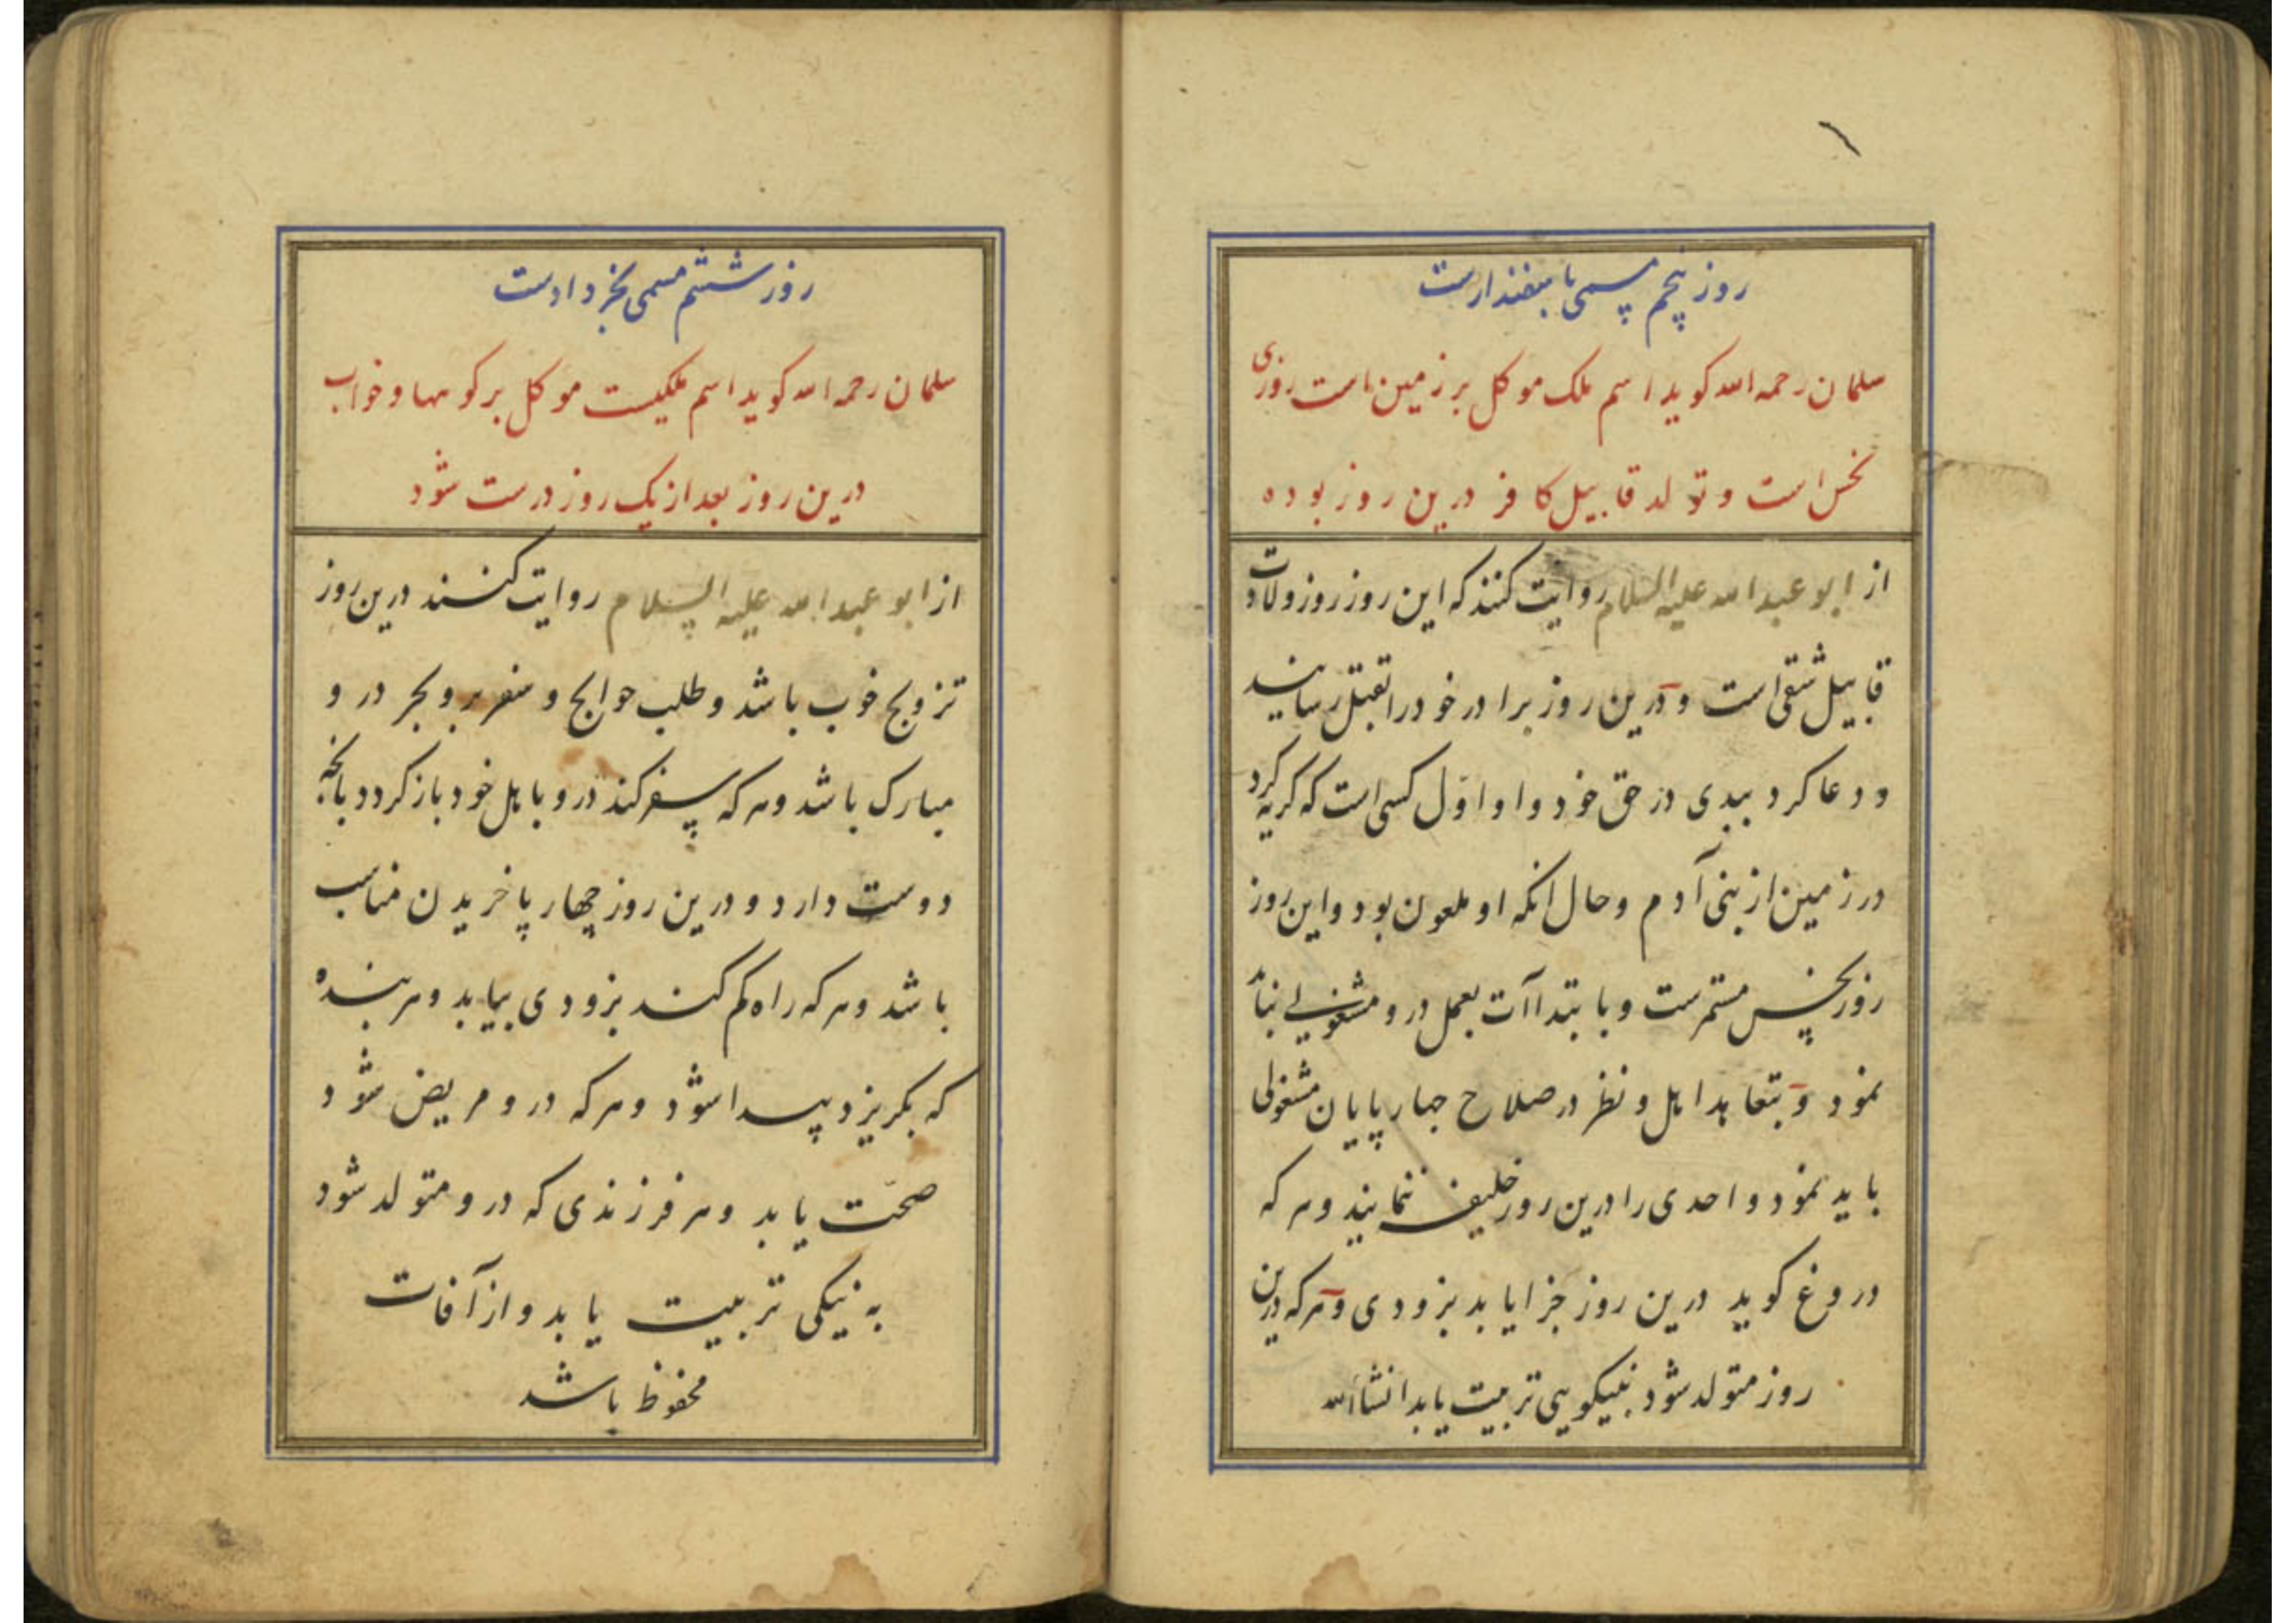 روز پنجم مسمی باسفندارست
سلمان رحمه الله کوید اسم ملک موکل بر زمین است روزی
نحس است و تولد قابیل کافر درین روز بوده
از ابو عبد الله علیه السلام روایت کنند که این روز روز ولادت
قابیل شقی است و درین روز برادر خود را بقتل رسانید
و دعا کرد ببدی در حق خود و او اول کسی است که کریه کرد
در زمین از بنی آدم و حال انکه او ملعون بود و این روز
روز نحس مستمرست و بابتداآت بعمل درو مشغولی نباید
نمود و بتعاهد اهل و نظر در صلاح چهارپایان مشغولی
باید نمود و احدی را درین روز خلیفه ننمایند و هر که
دروغ کوید درین روز جزا یابد بزودی و هر که درین
روز متولد شود بنیکویی تربیت یابد انشاالله
روز ششم مسمی بخردادست
سلمان رحمه الله کوید اسم ملکیست موکل بر کوهها و خواب
درین روز بعد از یک روز درست شود
از ابو عبد الله علیه السلام روایت کنند درین روز
تزویج خوب باشد و طلب حوایج و سفر بر و بحر درو
مبارک باشد و هر که سفر کند درو باهل خود باز کردد بانچه
دوست دارد و درین روز چهارپا خریدن مناسب
باشد و هر که راه کم کند بزودی بیابد و هر بنده
که بکریزد پیدا شود و هر که درو مریض شود
صحّت یابد و هر فرزندی که درو متولد شود
به نیکی تربیت یابد و از آفات
محفوظ باشد